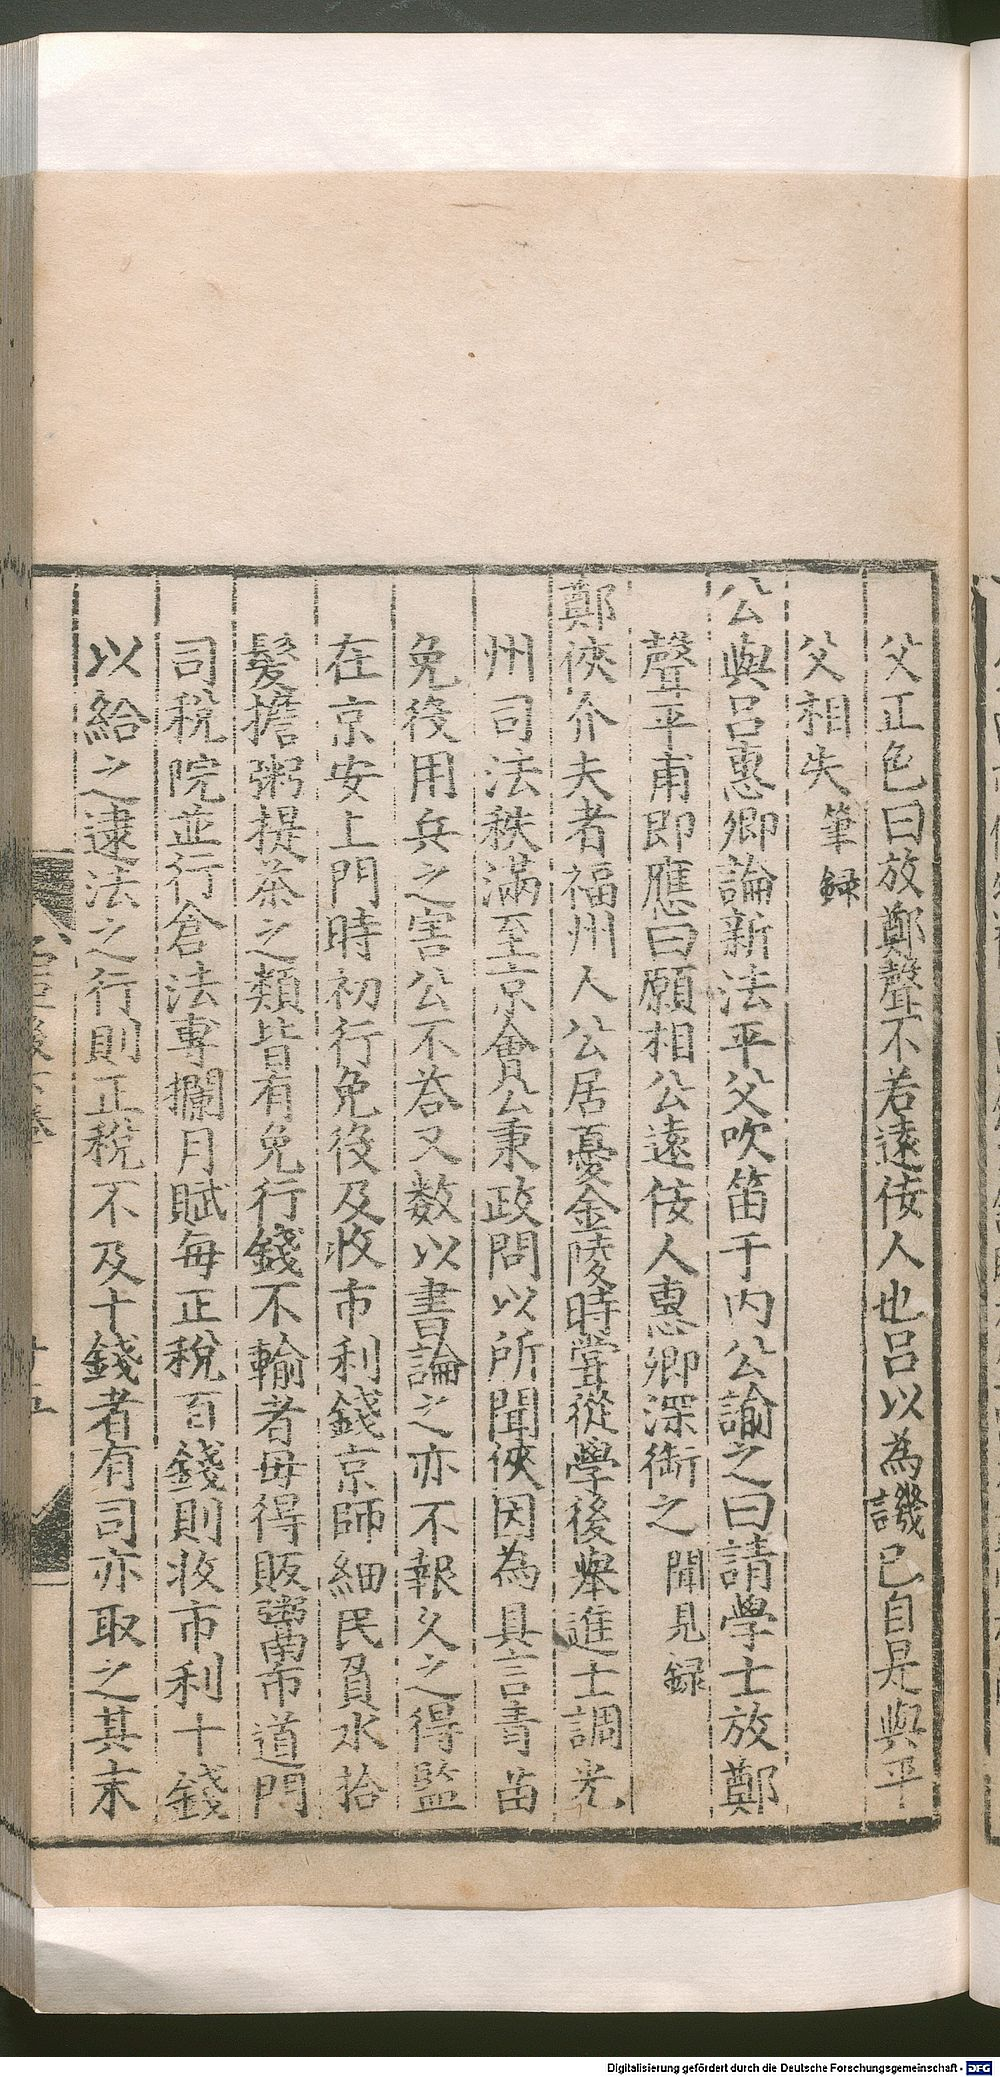 父正色曰放鄭聲不若遠佞人也吕以為譏已自是與平
父相失 筆録
公與吕惠卿論新法平父吹笛于内公諭之曰請學士放鄭
聲平甫即應曰願相公遠佞人惠卿深銜之 聞見録
鄭俠介夫者福州人公居憂金陵時嘗從學後舉進士調光
州司法秩滿至京會公秉政問以所聞俠因為具言青苗
免役用兵之害公不荅又数以書論之亦不報久之得監
在京安上門時初行免役及收市利錢京師細民負水拾
髮擔粥提茶之類皆有免行錢不輸者毋得販鬻市道門
司稅院並行倉法專攔月賦每正稅百錢則收市利十錢
以給之逮法之行則正稅不及十錢者有司亦取之其末
十五
Digitalisierung gefördert durch die Deutsche Forschungsgemeinschaft - DFG